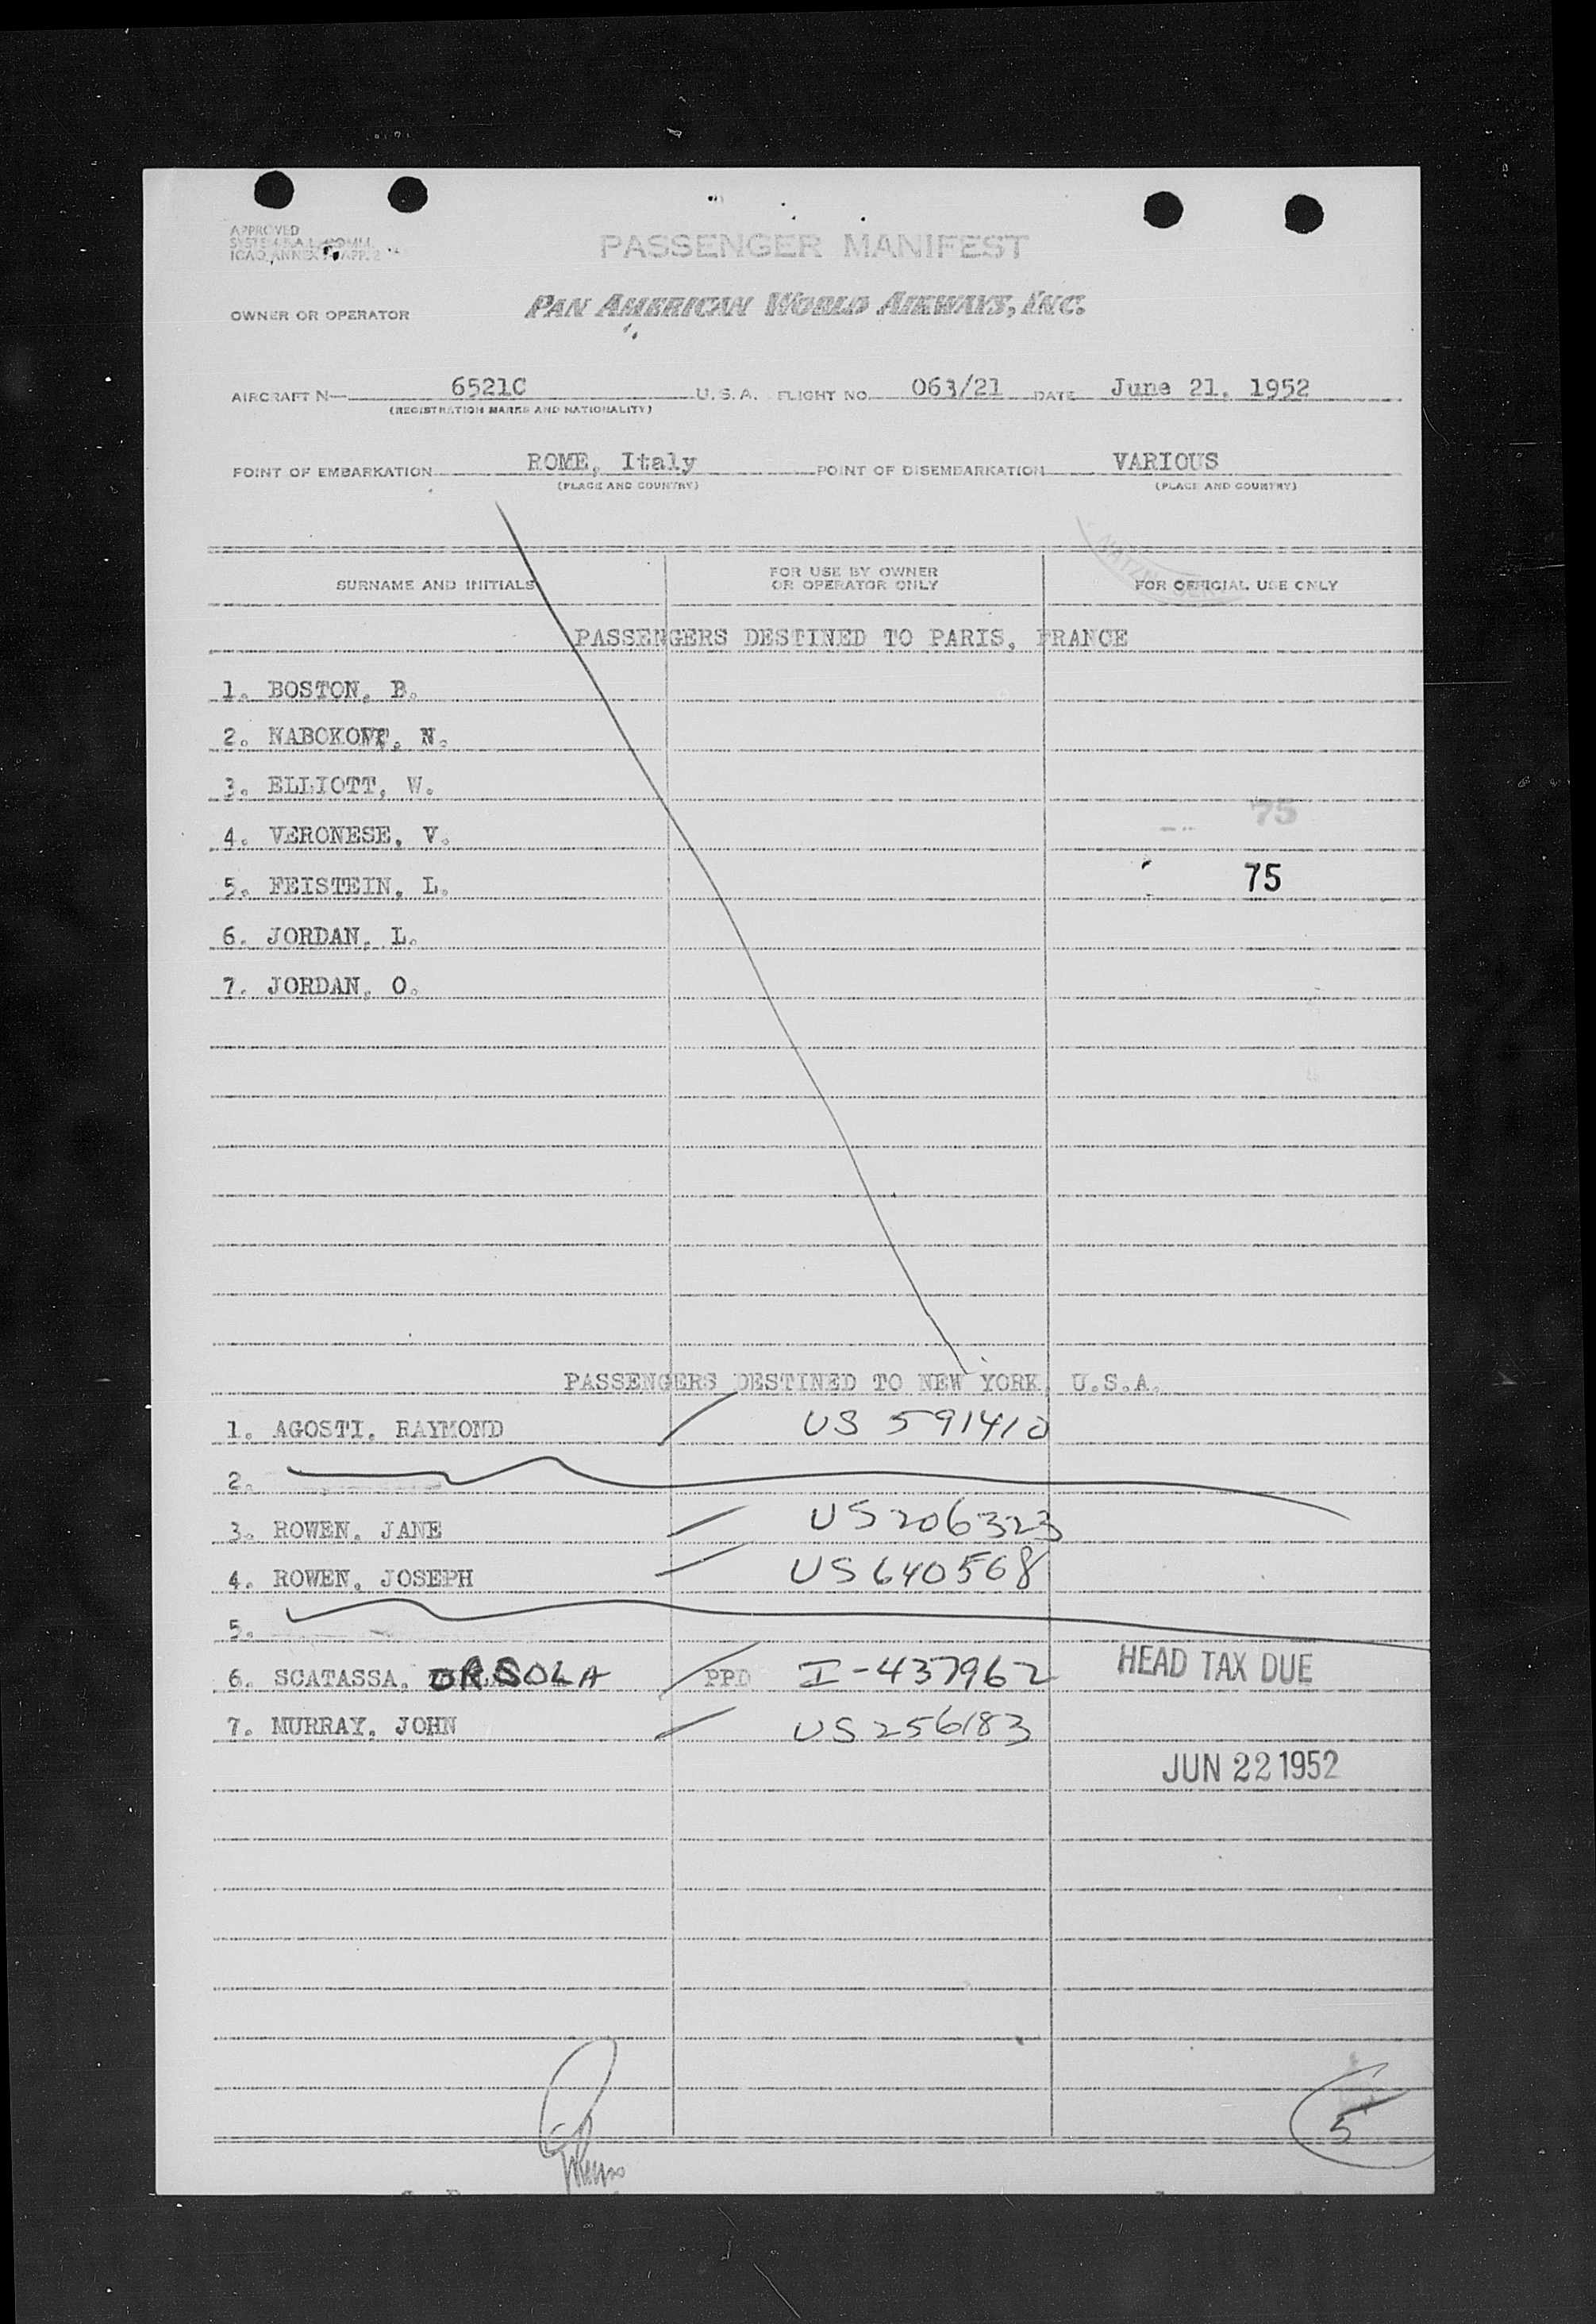 APPROVED
PASSENGER MANIFEST
OWNER OR OPERATOR PAN AMERICAN WORLD AIRWAYS, INC.
AIRCRAFT N- 6521C U.S.A. FLIGHT NO. 063/21 DATE June 21, 1952
(REGISTRATION MARKS AND NATIONALITY)
POINT OF EMBARKATION ROME, Italy POINT OF DISEMBARKATION VARIOUS
(PLACE AND COUNTRY) (PLACE AND COUNTRY)
SURNAME AND INITIALS FOR USE BY OWNER OR OPERATOR ONLY FOR OFFICIAL USE ONLY
PASSENGERS DESTINED TO PARIS, FRANCE
1. BOSTON, B.
2. N.
3. ELLIOTT, W.
75
4. VERONESE, V.
5. FEISTEIN, L. 75
6. JORDAN, L.
7. JORDAN, O.
PASSENGERS DESTINED TO NEW YORK, U.S.A.
1. AGOSTI, RAYMOND US 591410
2.
3. ROWEN, JANE US 206323
4. ROWEN, JOSEPH US 640568
5.
6. SCATASSA, ORSOLA PPD I-437962 HEAD TAX DUE
7. MURRAY, JOHN US 256183
JUN 22 1952
5